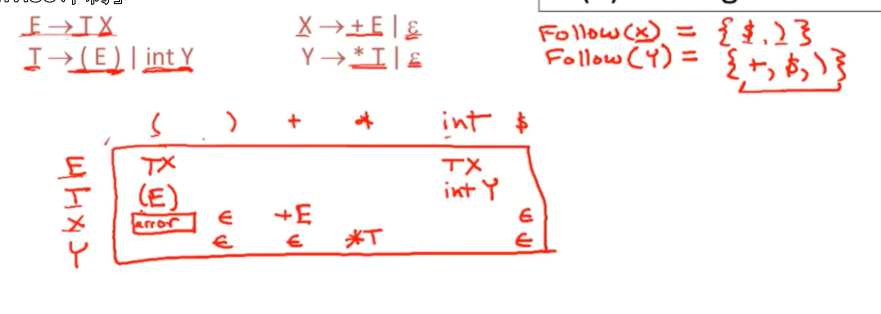 E → TX X → +E | ε
T → (E) | int Y Y → *T | ε
Follow(X) = { $, ) }
Follow(Y) = { +, $, ) }
( ) + * int $
E TX TX
T (E) int Y
X error ε +E ε
Y ε ε *T ε